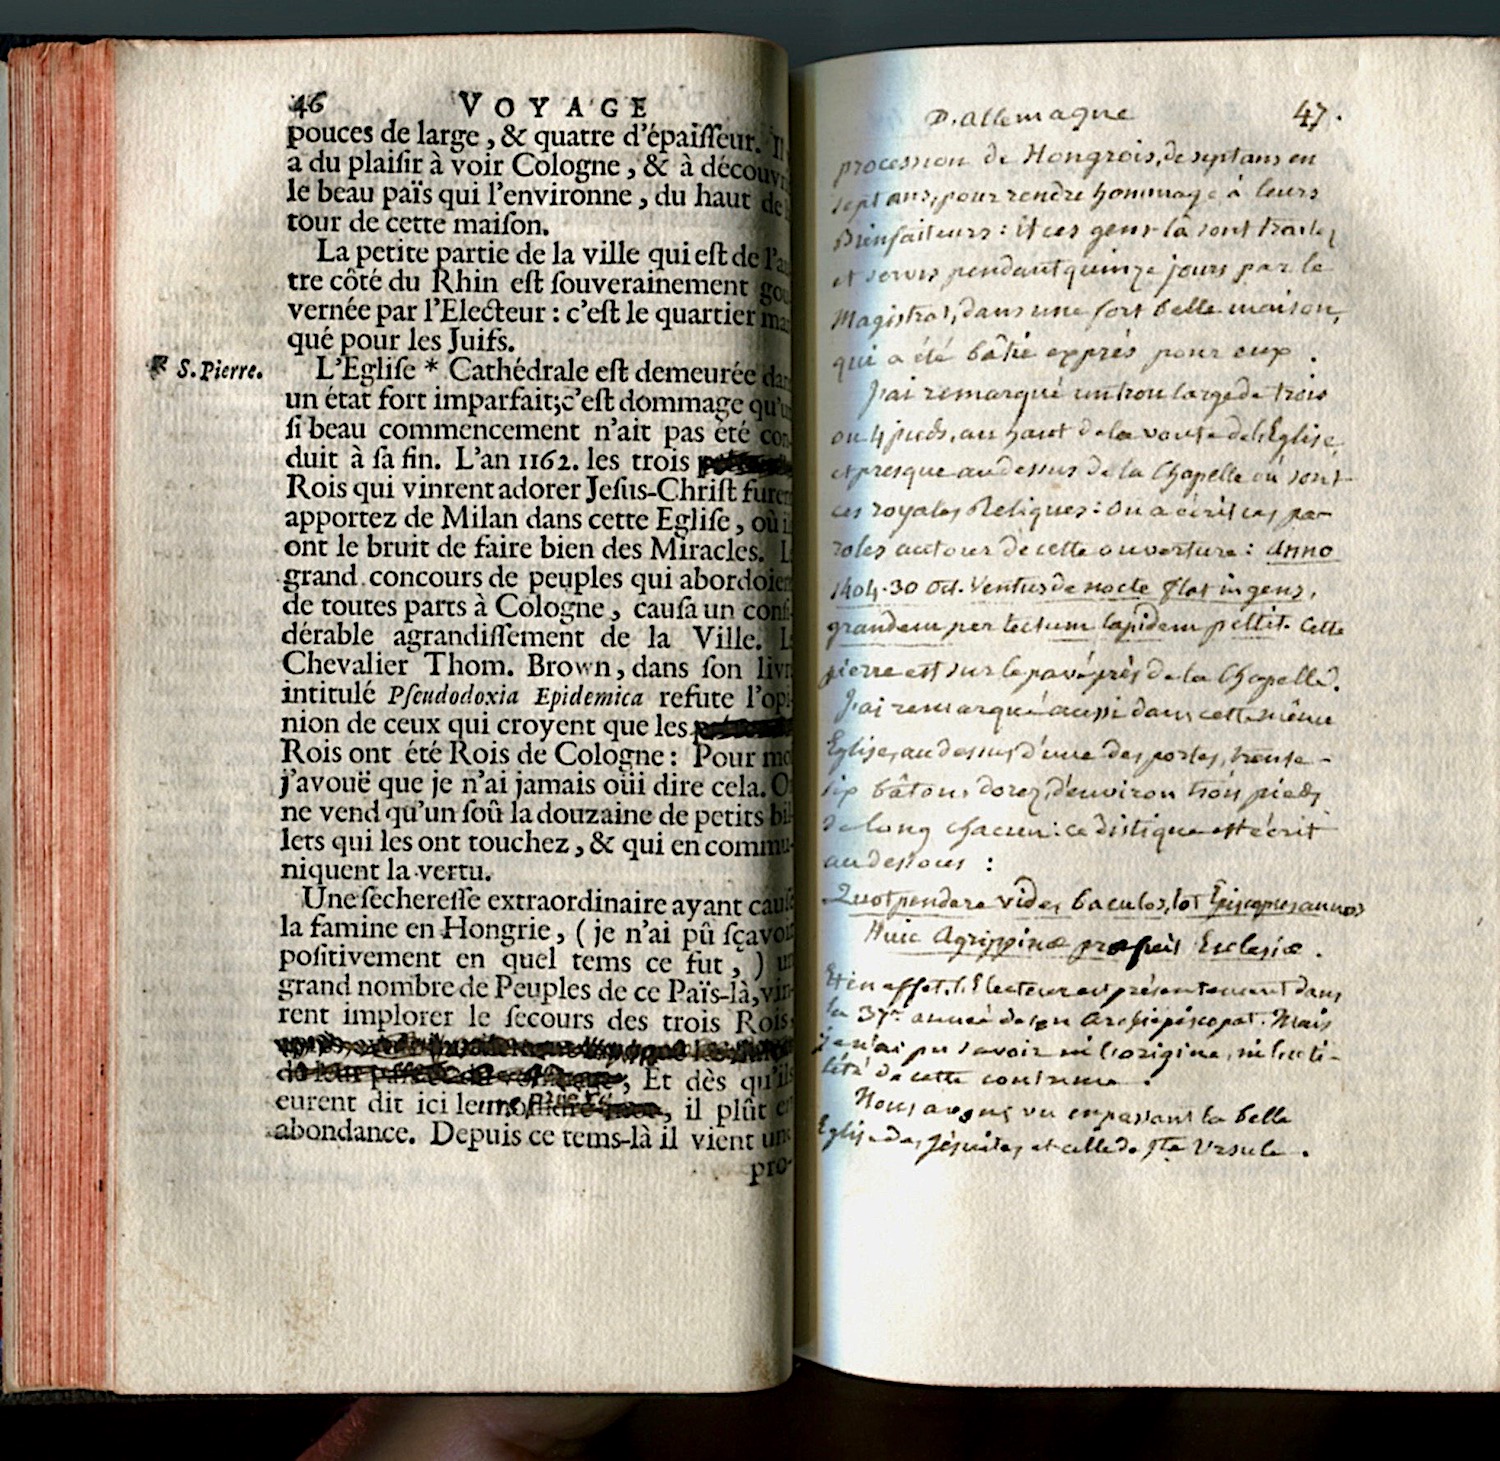 46 VOYAGE
pouces de large, & quatre d'épaiſſeur. Il
a du plaiſir à voir Cologne, & à découvri
le beau païs qui l'environne, du haut de
tour de cette maiſon.
La petite partie de la ville qui eſt de l'au
tre côté du Rhin eſt ſouverainement gou
vernée par l'Electeur: c'eſt le quartier mar
qué pour les Juifs.
* S. Pierre.
L'Egliſe * Cathédrale eſt demeurée dan
un état fort imparfait; c'eſt dommage qu'u
ſi beau commencement n'ait pas été con
duit à ſa fin. L'an 1162. les trois
Rois qui vinrent adorer Jeſus-Chriſt furen
apportez de Milan dans cette Egliſe, où il
ont le bruit de faire bien des Miracles. L
grand concours de peuples qui abordoien
de toutes parts à Cologne, cauſa un conſi
dérable agrandiſſement de la Ville. L
Chevalier Thom. Brown, dans ſon livr
intitulé Pſeudodoxia Epidemica refute l'opi
nion de ceux qui croyent que les
Rois ont été Rois de Cologne: Pour mo
j'avouë que je n'ai jamais oüi dire cela. O
ne vend qu'un ſoû la douzaine de petits bil
lets qui les ont touchez, & qui en commu-
niquent la vertu.
Une ſechereſſe extraordinaire ayant cauſé
la famine en Hongrie, (je n'ai pû ſçavoir
poſitivement en quel tems ce fut,) un
grand nombre de Peuples de ce Païs-là, vin-
rent implorer le ſecours des trois Rois
; Et dès qu'ils
eurent dit ici leur, il plût en
abondance. Depuis ce tems-là il vient une
pro-
D'allemagne 47.
procession de Hongrois, de sept ans en
sept ans, pour rendre hommage à leurs
Bienfaiteurs: et ces gens-là sont traitez
et servis pendant quinze jours par le
Magistrat, dans une fort belle maison,
qui a été bâtie exprès pour eux.
J'ai remarqué un trou large de trois
ou 4 pieds, au haut de la voute de l'Eglise,
et presque au dessus de la Chapelle où sont
ces royales Reliques: On a écrit ces pa-
roles autour de cette ouverture: Anno
1404. 30 Oct. Ventus de nocte flat ingens,
grandem per tectum lapidem pellit. Cette
pierre est sur le pavé près de la Chapelle.
J'ai remarqué aussi dans cette même
Eglise, au dessus d'une des portes, trente-
six bâtons dorez, d'environ trois pieds
de long chacun: ce distique est écrit
au dessous:
Quot pendere vides baculos, tot Episcopus annos
Huic Agrippinæ præfuit Ecclesiæ.
Et en effet, l'Electeur est présentement dans
la 37me année de son Archiépiscopat. Mais
je n'ai pu savoir ni l'origine, ni l'uti-
lité de cette coutume.
Nous avons vu en passant la belle
Eglise des Jésuites, et celle de Ste Ursule.